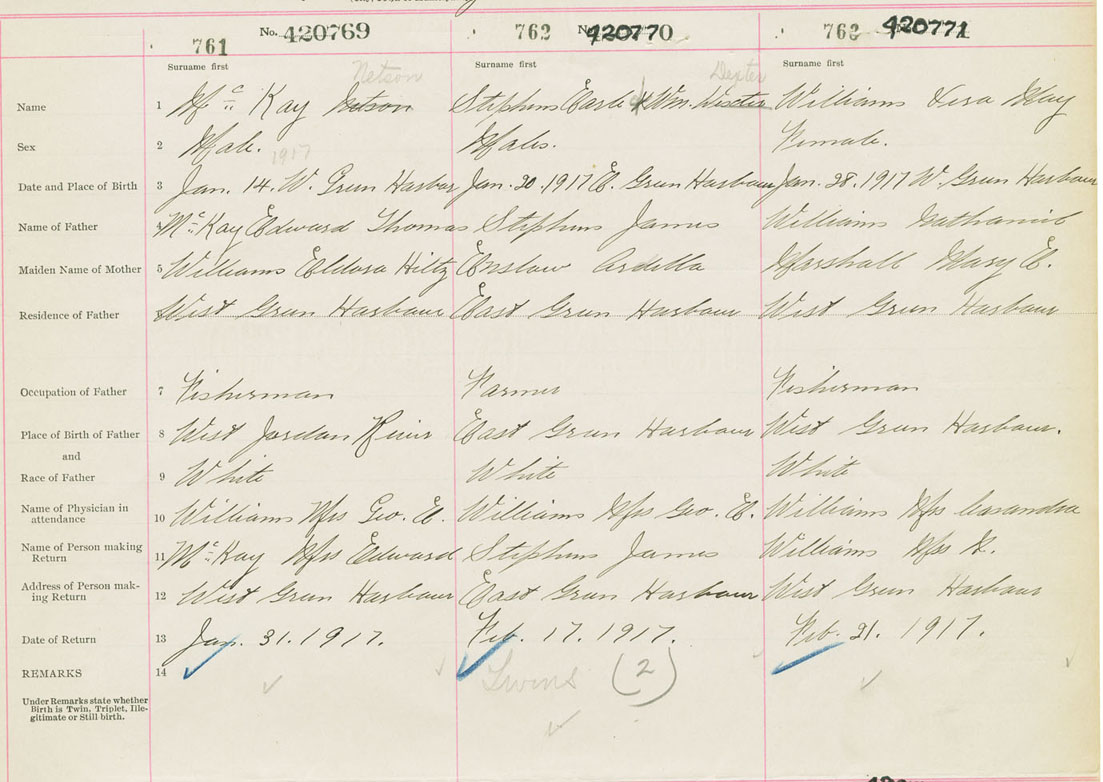 761 No. 420769 762 No. 420770 763 420771
Surname first Surname first Surname first
Netson Dexter
Name 1 Mc Kay Netson Stephens Earle & Wm. Dexter Williams Vera May
Sex 2 Male. Males. Female.
1917
Date and Place of Birth 3 Jan. 14. W. Green Harbor Jan. 20. 1917 E. Green Harbour Jan. 28. 1917 W. Green Harbour
Name of Father 4 Mc Kay Edward Thomas Stephens James Williams Nathaniel
Maiden Name of Mother 5 Williams Eldora Hiltz Enslow Ardella Marshall Mary E.
Residence of Father 6 West Green Harbour East Green Harbour West Green Harbour
Occupation of Father 7 Fisherman Farmer Fisherman
Place of Birth of Father 8 West Jordan River East Green Harbour West Green Harbour.
and
Race of Father 9 White White White
Name of Physician in attendance 10 Williams Mrs Geo. E. Williams Mrs Geo. E. Williams Mrs Casandra
Name of Person making Return 11 Mc Kay Mrs Edward Stephens James Williams Mrs N.
Address of Person mak-ing Return 12 West Green Harbour East Green Harbour West Green Harbour
Date of Return 13 Jan. 31. 1917. Feb. 17. 1917. Feb. 21. 1917.
REMARKS 14 Twins (2)
Under Remarks state whether
Birth is Twin, Triplet, Ille-
gitimate or Still birth.